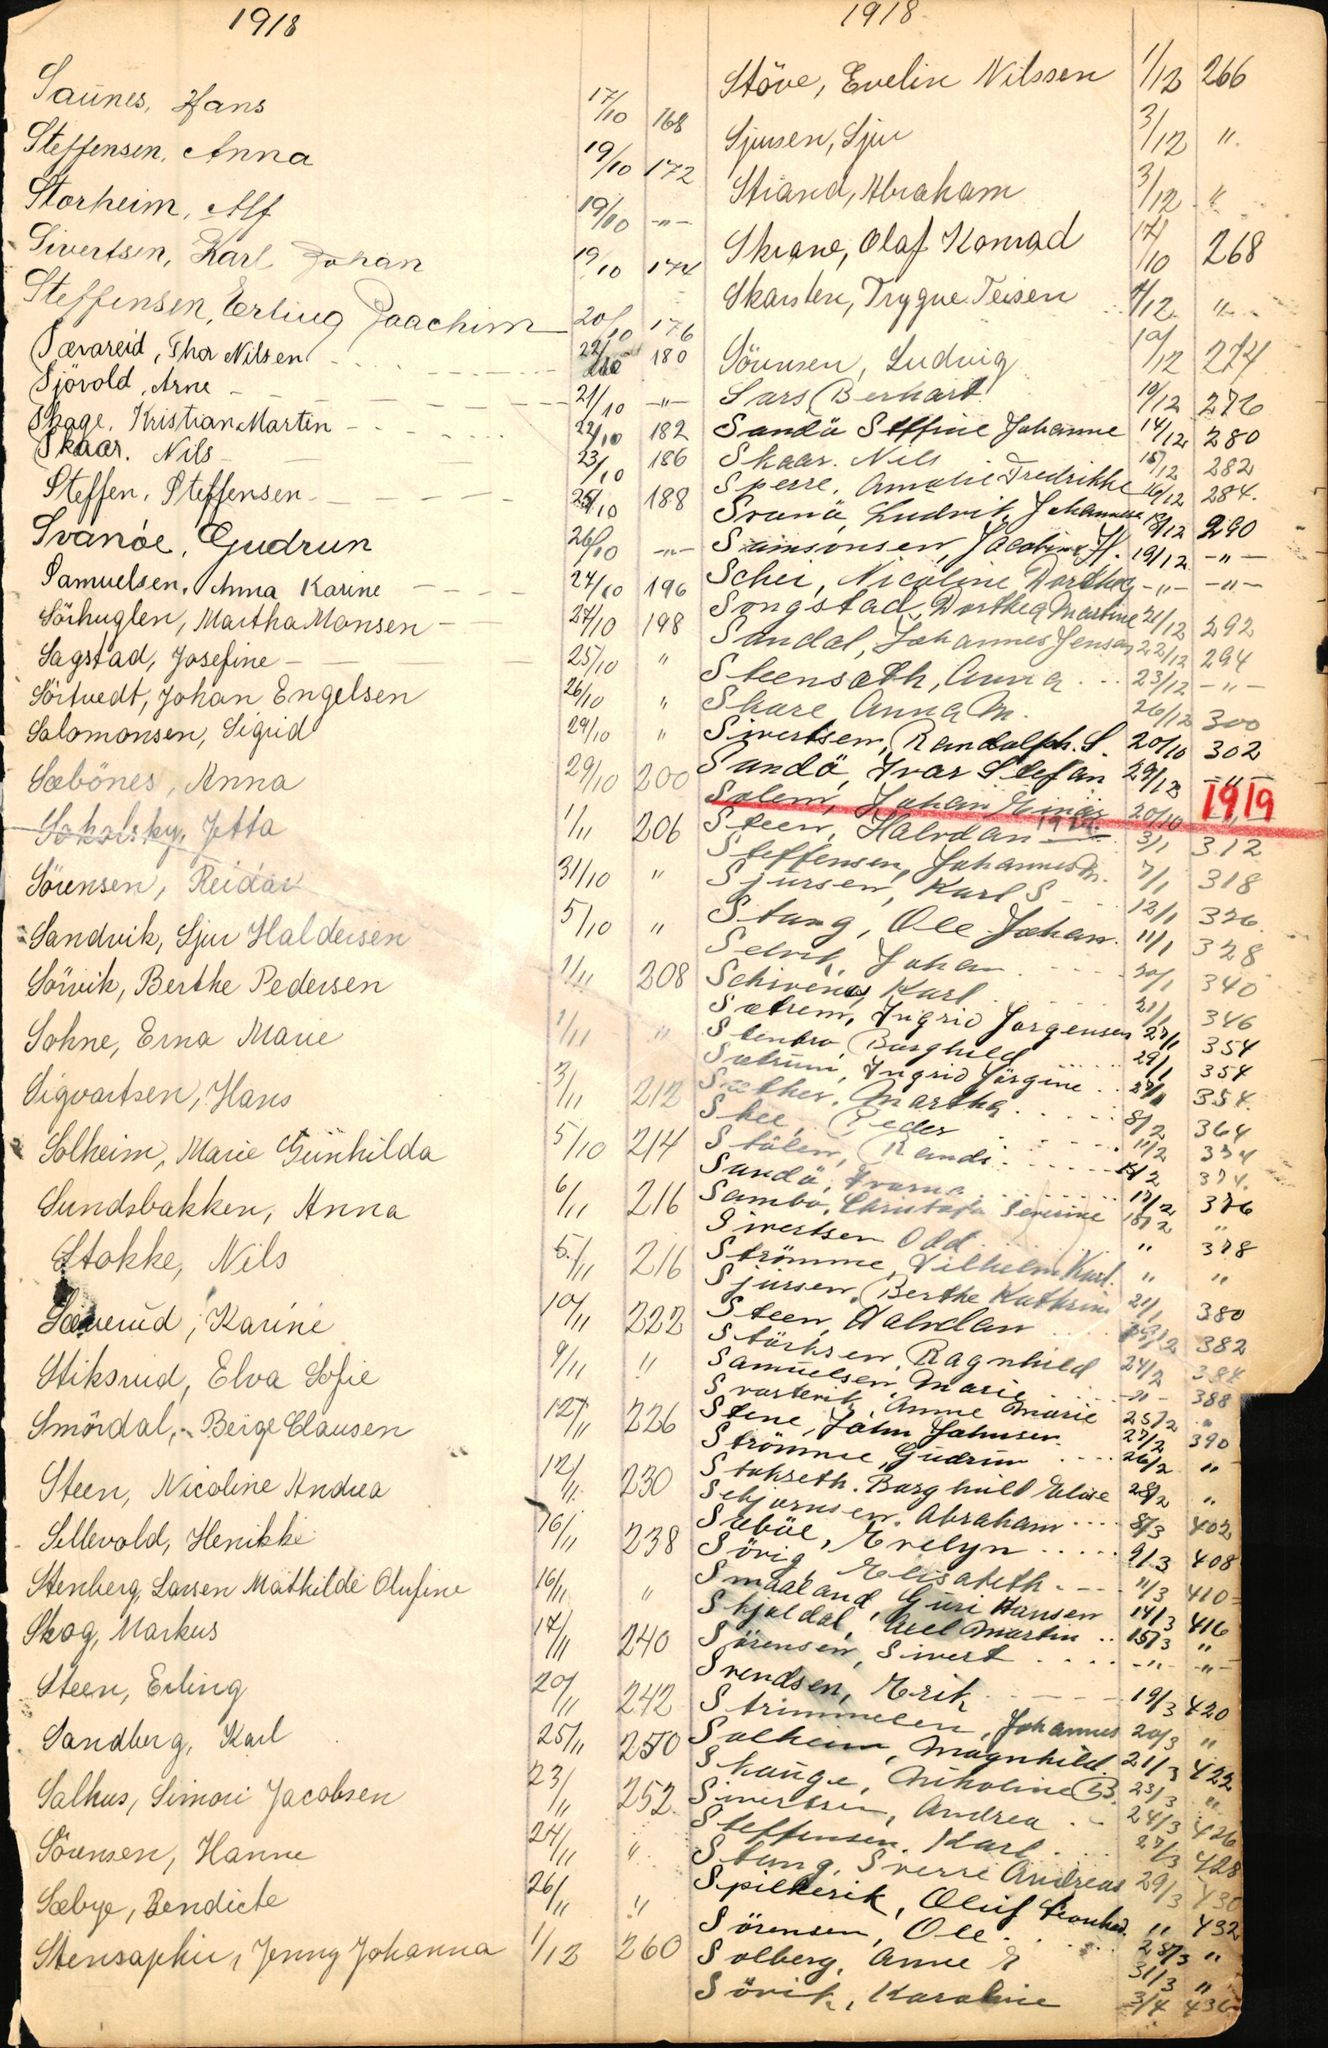 1918
Saunes, Hans 17/10 168
Steffensen, Anna 19/10 172
Storheim, Alf 19/10 -"-
Sivertsen, Karl Johan 19/10 174
Steffensen, Erling Joachim 20/10 176
Sævareid, Thor Nilsen 22/10 180
Sjövold, Arne 21/10 -"-
Skage, Kristian Martin 22/10 182
Skaar, Nils 23/10 186
Steffen, Steffensen 25/10 188
Svanöe, Gudrun 26/10 -"-
Samuelsen, Anna Karine 27/10 196
Sörhuglen, Martha Monsen 27/10 198
Sagstad, Josefine 25/10 "
Sörtvedt, Johan Engelsen 26/10 "
Salomonsen, Sigrid 29/10 "
Sæbönes, Anna 29/10 200
Sokolsky, Jetta 1/11 206
Sörensen, Reidar 31/10 "
Sandvik, Sjur Haldorsen 5/10 "
Sörvik, Berthe Pedersen 1/11 208
Sohne, Erna Marie 1/11 "
Sigvartsen, Hans 3/11 212
Solheim, Marie Gunhilda 5/10 214
Sundsbakken, Anna 6/11 216
Stokke, Nils 5/11 216
Sæverud, Karine 10/11 222
Stiksrud, Elva Sofie 9/11 "
Smördal, Beige Clausen 12/11 226
Steen, Nicoline Andrea 12/11 230
Sellevold, Henikke 16/11 238
Stenberg, Larsen Mathilde Olufine 16/11 "
Skog, Markus 17/11 240
Steen, Erling 20/11 242
Sandberg, Karl 25/11 250
Salhus, Simon Jacobsen 23/11 252
Sörensen, Hanne 24/11 "
Sæbye, Bendicte 26/11 "
Stensaphir, Jenny Johanna 1/12 260
1918
Stöve, Evelin Nilssen 1/12 266
Sjursen, Sjur 3/12 "
Strand, Abraham 3/12 "
Skrane, Olaf Konrad 17/10 268
Skarsten, Trygve Teisen 4/12 "
Sörensen, Ludvig 10/12 274
Sars Berhart 10/12 276
Sandö Steffine Johanne 14/12 280
Skaar, Nils 15/12 282
Sperre, Amalie Fredrikke 16/12 284
Svanö, Ludvik Johannes 18/12 290
Samsonsen, Jacobine H. 19/12 -"-
Schei, Nicoline Dorthea -"- -"-
Songstad, Dorthea Martine 21/12 292
Sandal, Johannes Jensen 22/12 294
Steensæth, Anna 23/12 -"-
Skare Anna M. 26/12 300
Sivertsen, Randolph. S. 20/10 302
Sandö, Ivar Stefan 29/12 -"-
Solem, Johan Einar 20/10 "
1919
Steen, Halvdan 1919 3/1 312
Steffensen, Johannes M. 7/1 318
Sjursen, Karl S 12/1 326
Stang, Ole Johan 11/1 328
Selvik, Johan 20/1 340
Schivenes Karl 21/1 346
Sætrem, Ingrid Jørgensen 27/1 354
Stenbro, Borghild 29/1 354
Sætrum, Ingrid Jörgine 27/1 354
Sæther, Martha 8/2 364
Skei, Peder 11/2 374
Stölen, Randi 11/2 374
Sandö, Ivarna 17/2 376
Sambo, Christofa Severine 18/2 "
Sivertsen Odd " 378
Strömme, Vilhelm Karl " "
Sjursen, Berthe Kathrine 21/1 380
Steen, Halvdan 382
Störksen, Ragnhild 24/2 384
Samuelsen, Marie -"- 388
Svartevik, Anne Marie 25/2 "
Stene, John Johnsen 27/2 390
Strömme, Gudrun 26/2 "
Stokseth, Borghild Elise 28/2 "
Schjørnsen, Abraham 8/3 402
Sæböe, Evelyn 9/3 408
Sörig, Elisabeth 11/3 410
Smaaland, Guri Hansen 14/3 416
Skjeldal, Axel Martin 15/3 "
Sörensen, Sivert -"- -"-
Svendsen, Erik 19/3 420
Strimmelen, Johannes 20/3 "
Solheim, Magnhild 21/3 422
Skauge, Nikoline B. 23/3 "
Sivertsen, Andrea 24/3 426
Steffensen, Karl 27/3 428
Stang, Sverre Andreas 29/3 430
Spilkevik, Oluf Leonhard " 432
Sörensen, Ole 25/3 "
Solberg, Anne E 31/3 "
Sövik, Karoline 3/4 436